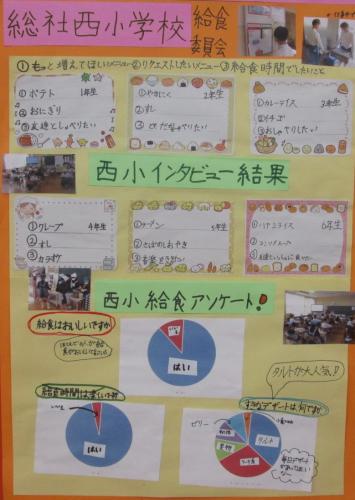 総社西小学校
給食
委員会
①もっと増えてほしいメニュー②リクエストしたいメニュー③給食時間でしたいこと
①ポテト 1年生
②おにぎり
③友達としゃべりたい
①やきにく 2年生
②すし
①カレーライス 3年生
②イチゴ
③おしゃべりしたい
西小インタビュー結果
①クレープ 4年生
②すし
③カラオケ
5年生
②さばのしおやき
①ハヤシライス 6年生
西小給食アンケート!
給食はおいしいですか
はい
タルトが大人気!!
給食時間は楽しいですか
いいえ
はい
すきなデザートは何ですか
ゼリー
タルト
ケーキ
毎日デザート
があったらいい
な～